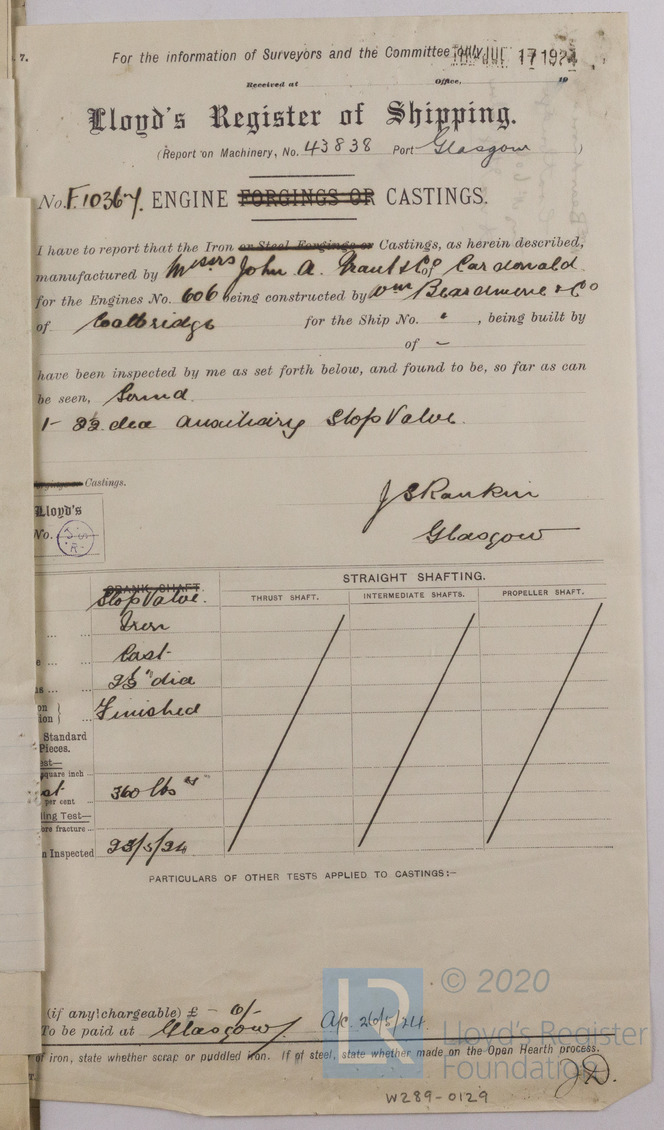 7.
For the information of Surveyors and the Committee only. JUL 17 1924
Received at Office, 19
Lloyd's Register of Shipping.
(Report on Machinery, No. 43838 Port Glasgow )
No. F.10367. ENGINE FORGINGS OR CASTINGS.
I have to report that the Iron or Steel Forgings or Castings, as herein described,
manufactured by Messrs John A. & Co of Cardonald
for the Engines No. 606 being constructed by Wm Beardmore & Co
of Coatbridge for the Ship No. , being built by
of -
have been inspected by me as set forth below, and found to be, so far as can
be seen, Sound.
1- dia Auxiliary Stop Valve.
Castings.
J S Rankin
Glasgow
Lloyd's
No.
STRAIGHT SHAFTING.
CRANK SHAFT.
Stop Valve.
THRUST SHAFT. INTERMEDIATE SHAFTS. PROPELLER SHAFT.
... ... Iron
e ... ... Cast
s ... ... dia
on } Finished
ion } ...
Standard
Pieces.
est—
square inch ...
per cent ... 360 lbs
ing Test—
ore fracture ...
n Inspected 23/5/24
PARTICULARS OF OTHER TESTS APPLIED TO CASTINGS:—
(if any chargeable) £ -
To be paid at Glasgow A/c. 26/5/24.
of iron, state whether scrap or puddled iron. If of steel, state whether made on the Open Hearth process.
LR
© 2020
Lloyd's Register
Foundation
W289-0129